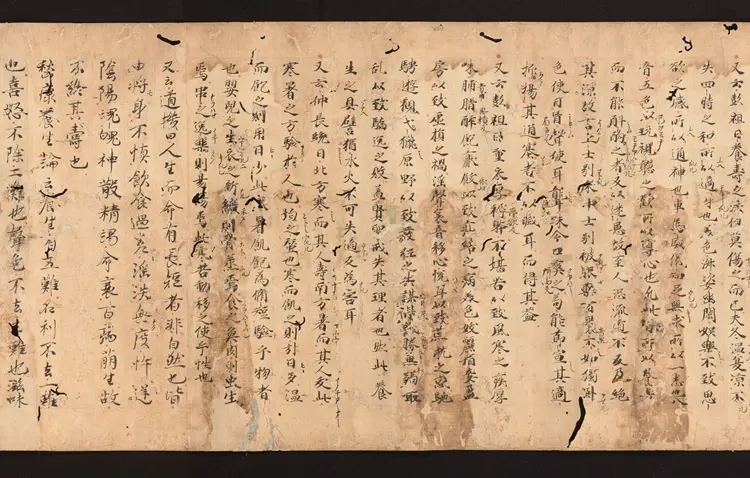 又云彭祖曰養壽之法但莫傷之而已夫冬温夏涼不
失四時之和所以適身也美色淑姿幽閑娯樂不致思
欲之感所以通神也車馬威儀知足無求所以一志也八
音五色以玩視聽之歡所以導心也凡此皆所以養壽
而不能斟酌之者反以迷患故至人恐流遁不反乃絶
其源故言上士別床中士別被服藥百裹不如獨臥
色使目盲聲使耳聾味令口爽苟能節宣其適
抑揚其通塞者不以減耳而得其益
又云彭祖曰重衣厚褥體不堪苦以致風寒之疾厚
味脯腊醉飽厭飫以致疝結之病美色妖麗媚妾盈
房以致虚損之禍淫聲哀音移心悦耳以致荒耽之惑馳
騁遊觀弋獵原野以致發狂之失謀得戰勝兼弱取
乱以致驕逸之敗蓋賢聖戒失其理者也然此養
生之具譬猶水火不可失適反為害耳
又云仲長統曰北方寒而其人壽南方暑而其人夭此
寒暑之方驗於人也均之蚕也寒而飢之則引日多温
而飽之則用日少此寒暑飢飽為脩短驗乎物者
也嬰兒之生衣之新纊則骨蒸焉食之魚肉則虫生
焉串之逸樂則易傷焉此寒苦動移之使乎性也
又云道機曰人生而命有長短者非自然也皆
由將身不慎飲食過差淫泆無度忤逆
陰陽魂魄神散精竭命衰百病萌生故
不終其壽也
嵇康養生論云養生有五難名利不去一難
也喜怒不除二難也聲色不去三難也滋味